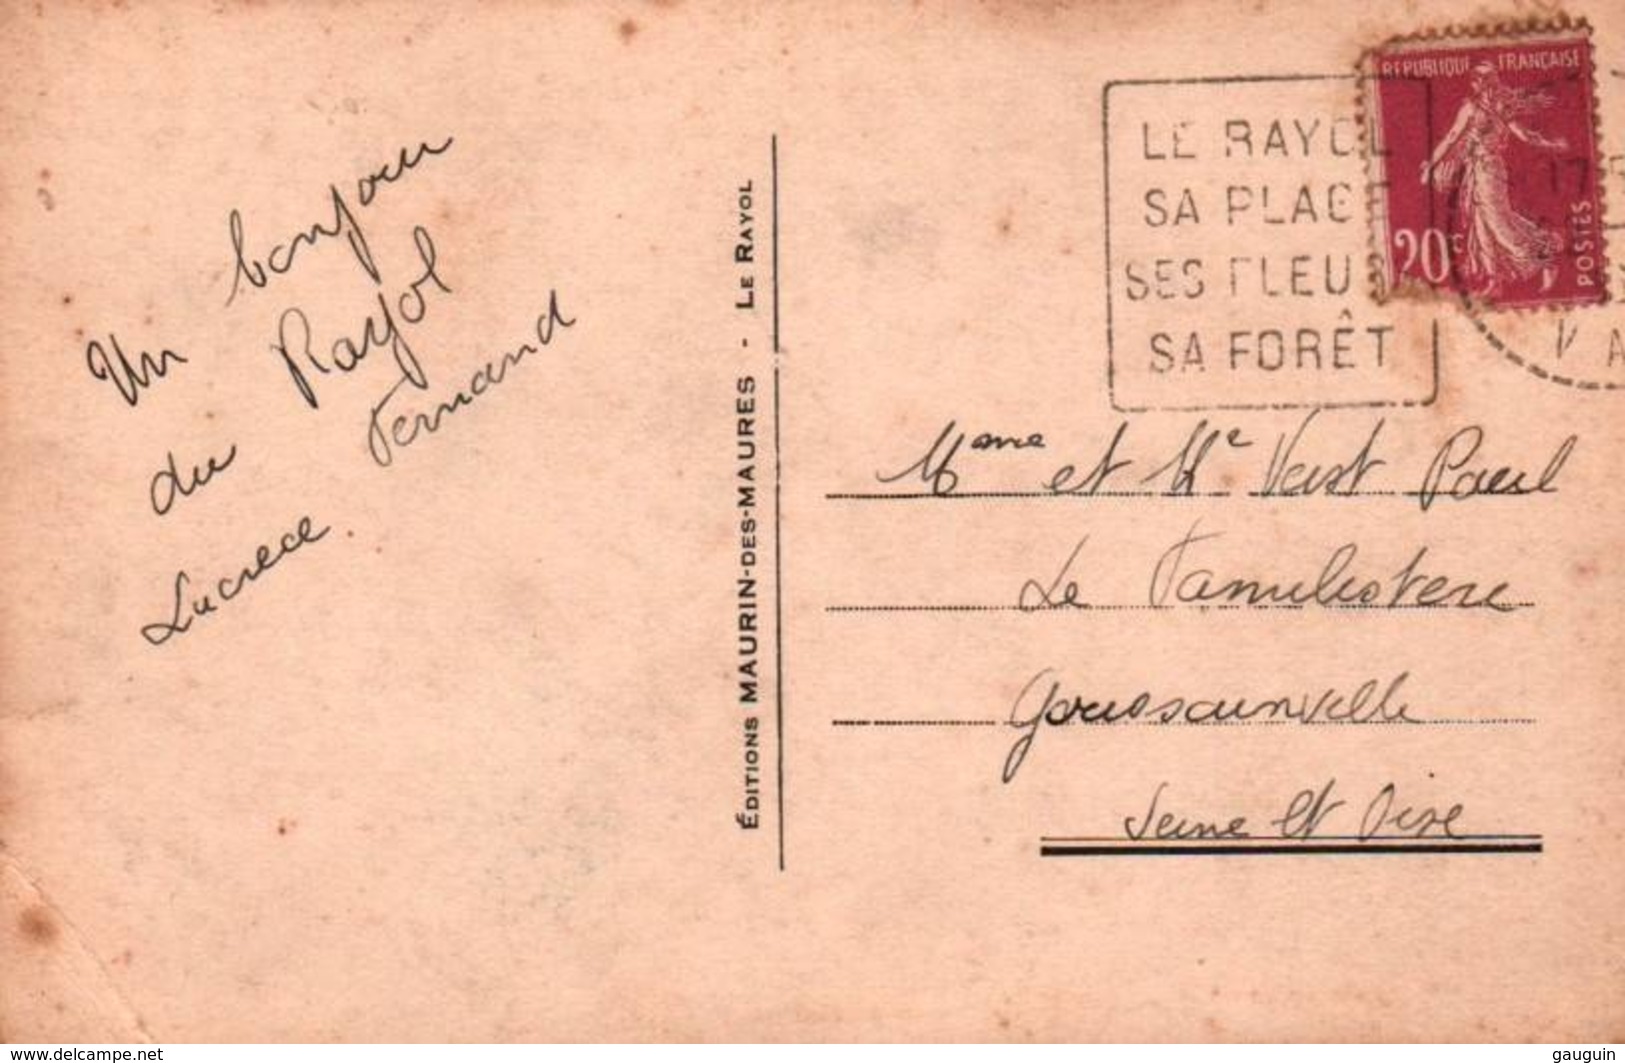 Un bonjour
du Rayol
Lucrece. Fernand
ÉDITIONS MAURIN-DES-MAURES - LE RAYOL
LE RAYOL
SA PLAGE
SES FLEURS
SA FORÊT
REPUBLIQUE FRANÇAISE
20c
POSTES
17
VA
Mme et Mr Vast Paul
Le Familistere
Goussainville
Seine et Oise
www.delcampe.net
gauguin